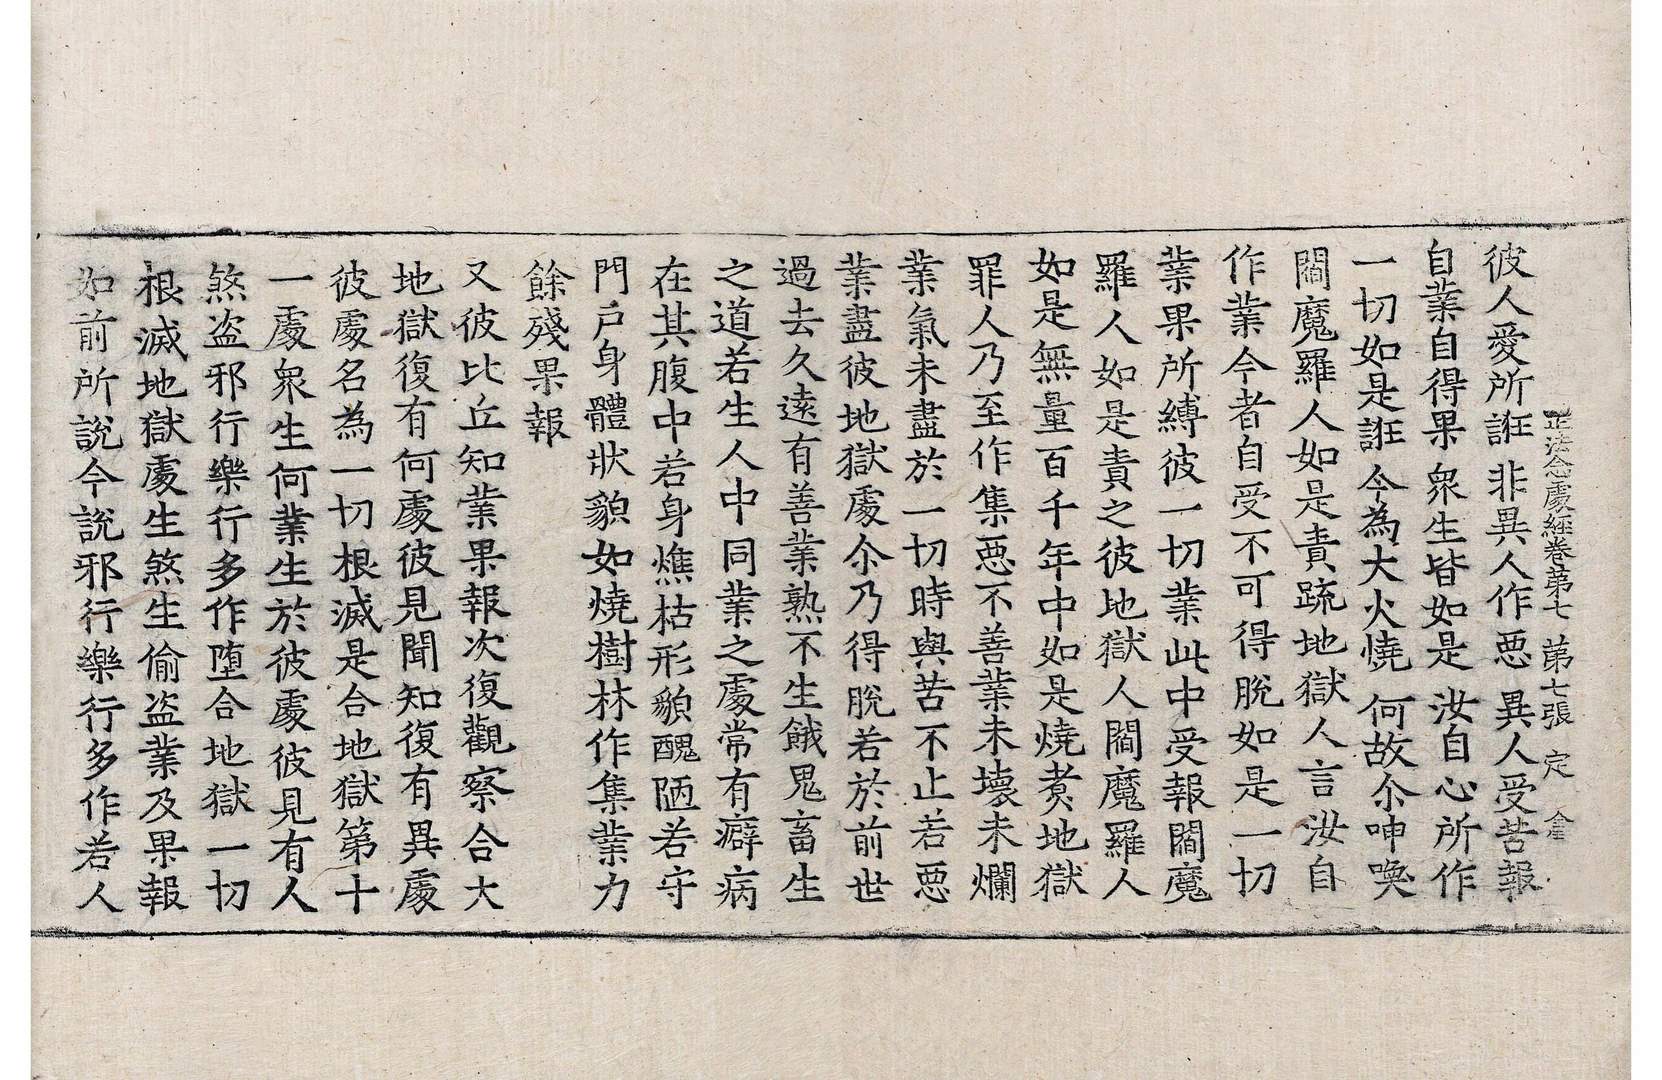 正法念處經卷第七 第七張 定
彼人愛所誑 非異人作惡 異人受苦報
自業自得果 衆生皆如是 汝自心所作
一切如是誑 今為大火燒 何故尒呻喚
閻魔羅人如是責疏地獄人言汝自
作業今者自受不可得脫如是一切
業果所縛彼一切業此中受報閻魔
羅人如是責之彼地獄人閻魔羅人
如是無量百千年中如是燒煑地獄
罪人乃至作集惡不善業未壞未爛
業氣未盡於一切時與苦不止若惡
業盡彼地獄處尒乃得脫若於前世
過去久遠有善業熟不生餓鬼畜生
之道若生人中同業之處常有癖病
在其腹中若身燋枯形貌醜陋若守
門戶身體狀貌如燒樹林作集業力
餘殘果報
又彼比丘知業果報次復觀察合大
地獄復有何處彼見聞知復有異處
彼處名為一切根滅是合地獄第十
一處衆生何業生於彼處彼見有人
煞盗邪行樂行多作墮合地獄一切
根滅地獄處生煞生偷盗業及果報
如前所說今說邪行樂行多作若人